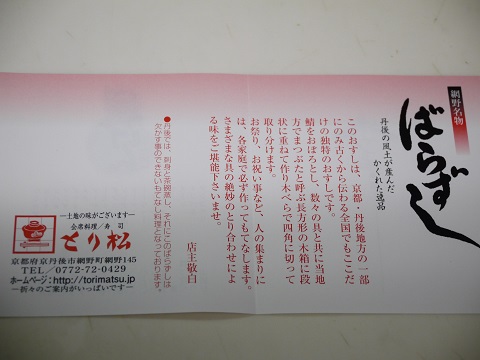 網野名物
ばらずし
丹後の風土が産んだ
かくれた逸品
このおすしは、京都・丹後地方の一部
にのみ古くから伝わる全国でもここだ
けの独特のおすしです。
鯖をおぼろとし、数々の具と共に当地
方でまつぶたと呼ぶ長方形の木箱に段
状に重ねて作り木べらで四角に切って
取り分けます。
お祭り、お祝い事など、人の集まりに
は、各家庭で必ず作ってもてなします。
さまざまな具の絶妙のとり合わせによ
る味をご堪能下さいませ。
店主敬白
●丹後では、刺身と茶碗蒸し、それにこのばらずしは
欠かす事のできないもてなし料理となっております。
―土地の味がございます―
会席料理/寿司
とり松
京都府京丹後市網野町網野145
TEL/0772-72-0429
ホームページ:http://torimatsu.jp
―折々のご案内がいっぱいです―